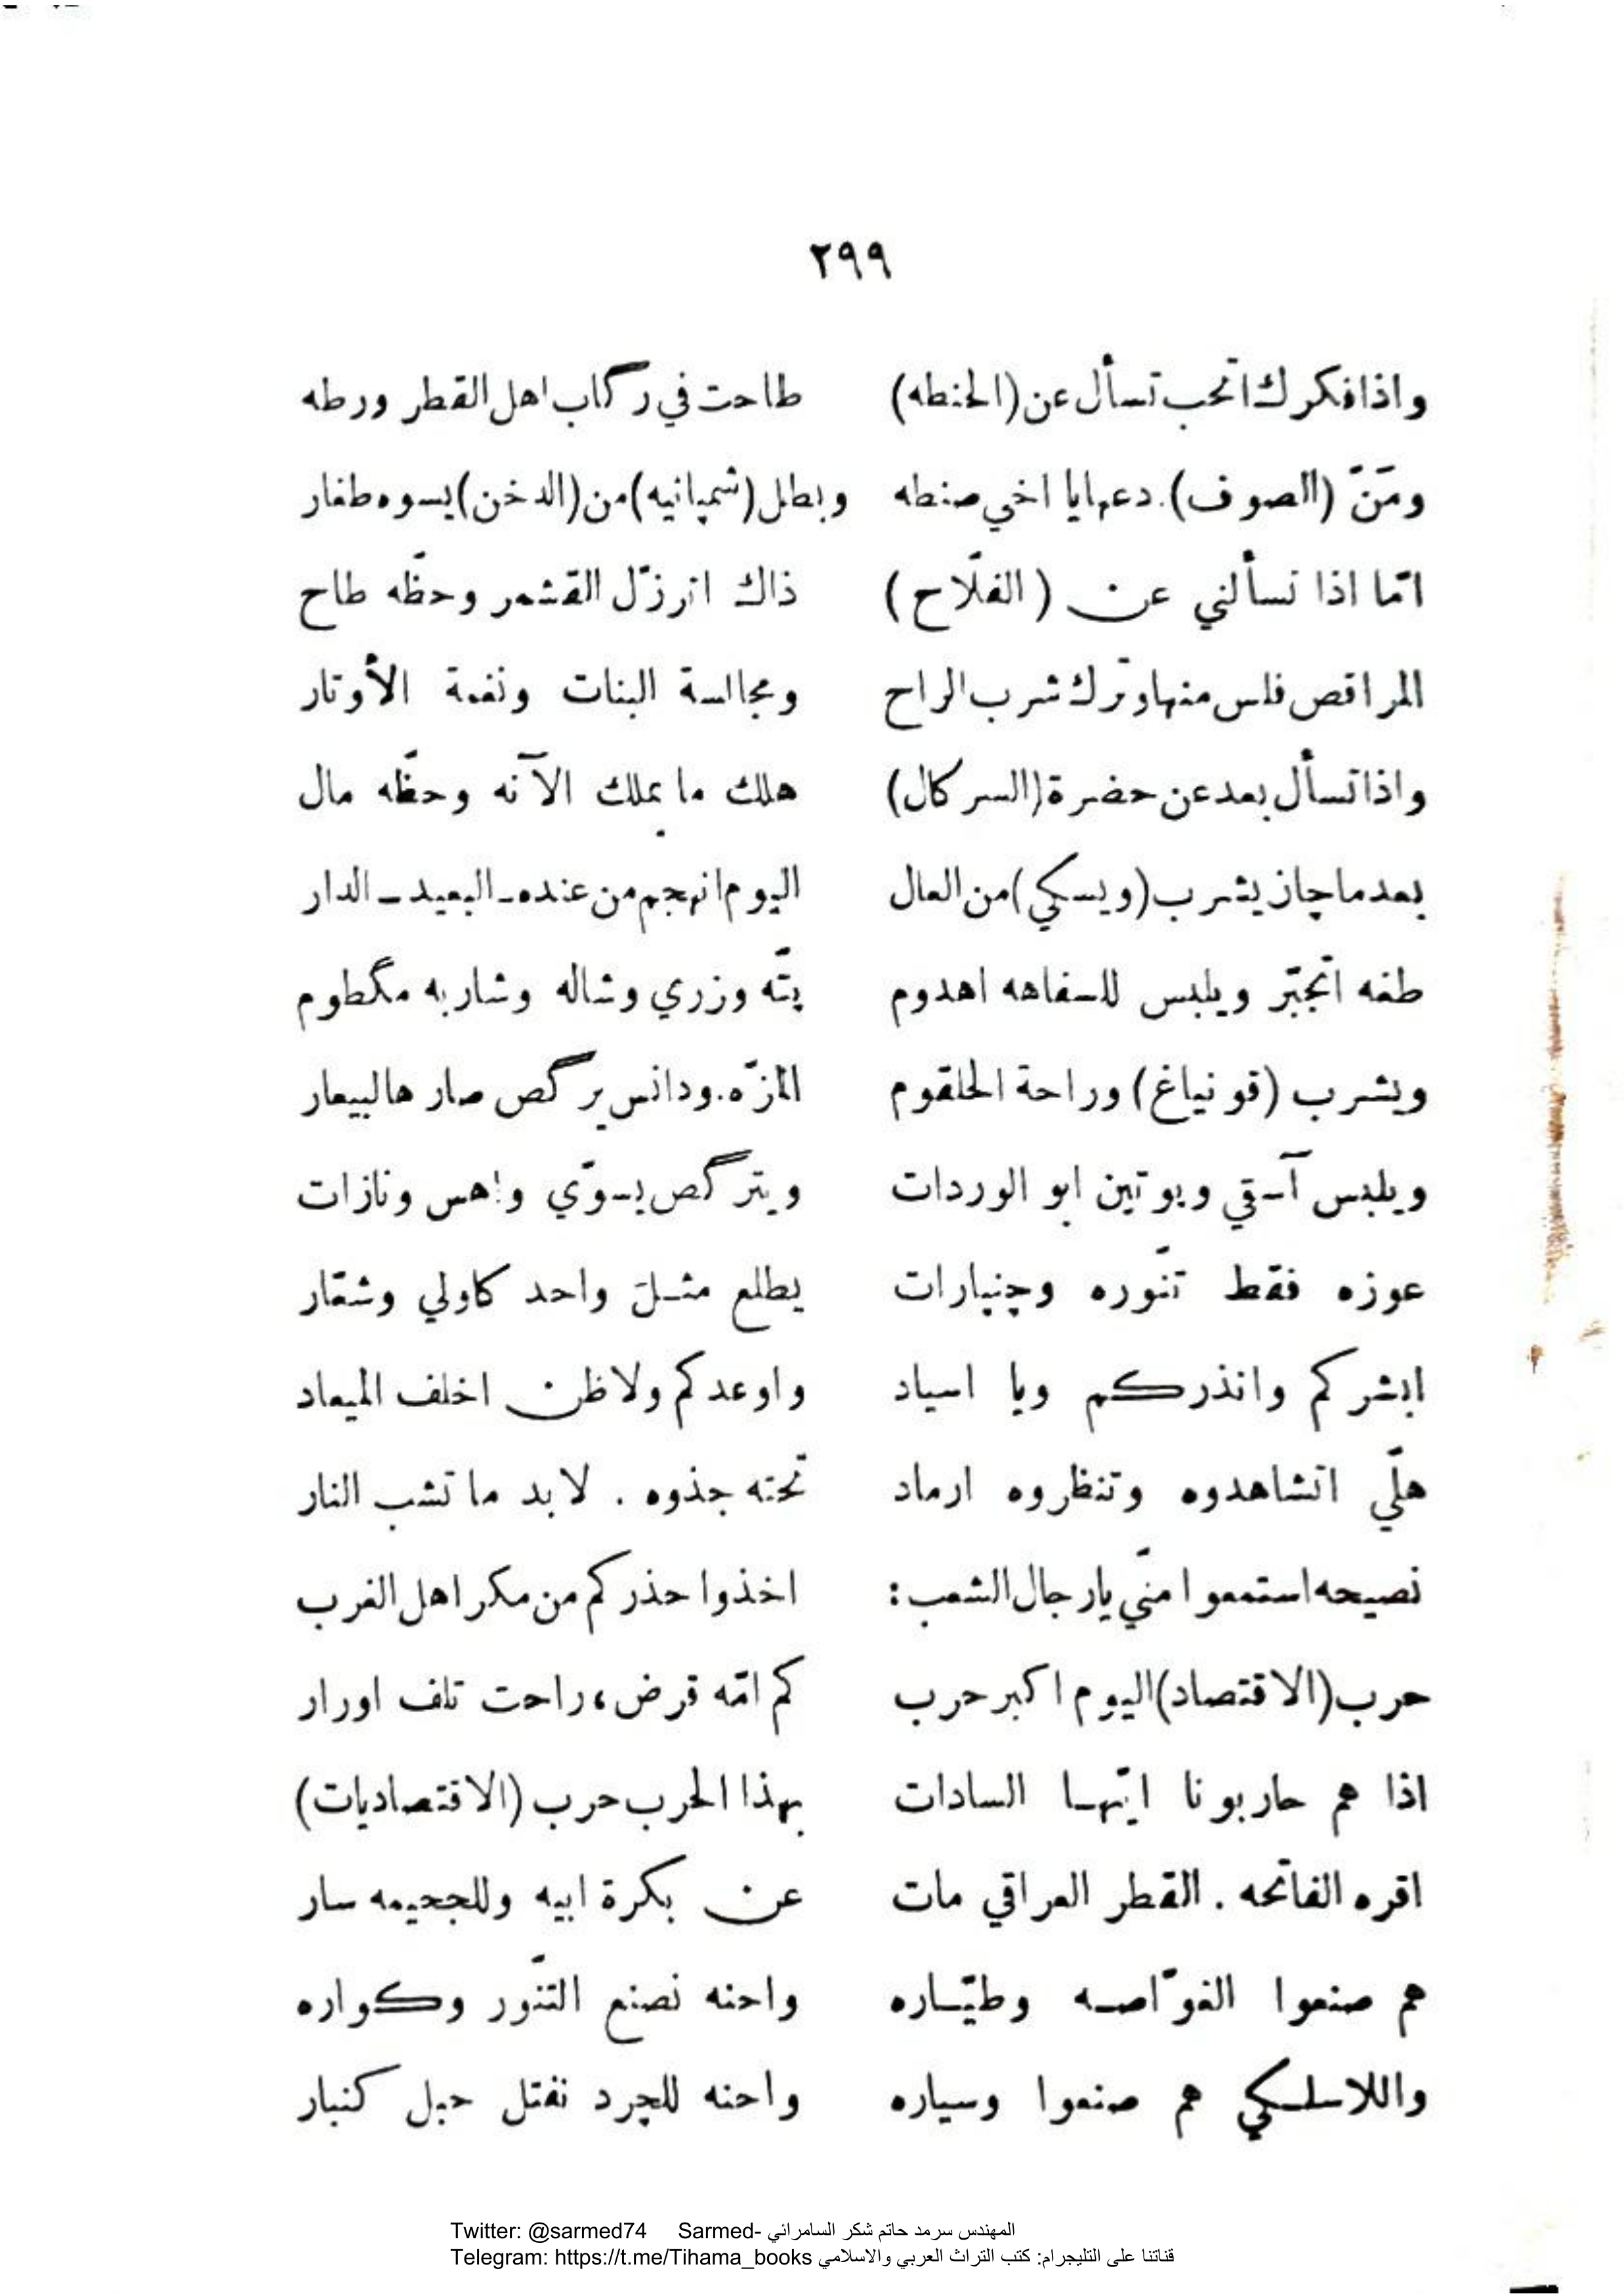 ٢٩٩
واذا فكرك اتحب تسأل عن (الحنطه) طاحت في رگاب اهل القطر ورطه
ومَنّ (الصوف). دعهايا اخي صنطه وبطل (شمپانيه) من (الدخن) يسوه طغار
امّا اذا تسألني عن (الفلّاح) ذاك انرزّل القشمر وحظّه طاح
المراقص فلس منها وترك شرب الراح ومجالسة البنات ونغمة الأوتار
واذا تسأل بعد عن حضرة (السركال) هلك ما يملك الآنه وحظّه مال
بعد ما چان يشرب (ويسكي) من العال اليوم انهجم من عنده ـ البعيد ـ الدار
طغه اتجبّر ويلبس للسفاهه اهدوم پتّه وزري وشاله وشاربه مگطوم
ويشرب (قونياغ) وراحة الحلقوم المازّه. ودانس يرگص صار هالبيعار
ويلبس آسقي وبوتين ابو الوردات ويترگص يسوّي واهس ونازات
عوزه فقط تنّوره وچنپارات يطلع مثلَ واحد كاولي وشعّار
ابشركم وانذركم ويا اسياد واوعدكم ولاظن اخلف الميعاد
هلّي اتشاهدوه وتنظروه ارماد تحته جذوه . لا بد ما تشب النار
نصيحه استمعوا منّي يارجال الشعب: اخذوا حذركم من مكر اهل الغرب
حرب (الاقتصاد) اليوم اكبر حرب كم امّه قرض، راحت تلف اورار
اذا هم حاربونا ايّها السادات بهذا الحرب حرب (الاقتصاديات)
اقره الفاتحه . القطر العراقي مات عن بكرة ابيه وللجحيمه سار
هم صنعوا الغوّاصه وطيّاره واحنه نصنع التنّور وكواره
واللاسلكي هم صنعوا وسياره واحنه للچرد نفتل حبل كنبار
Twitter: @sarmed74 Sarmed- المهندس سرمد حاتم شكر السامرائي
Telegram: https://t.me/Tihama_books قناتنا على التليجرام: كتب التراث العربي والاسلامي